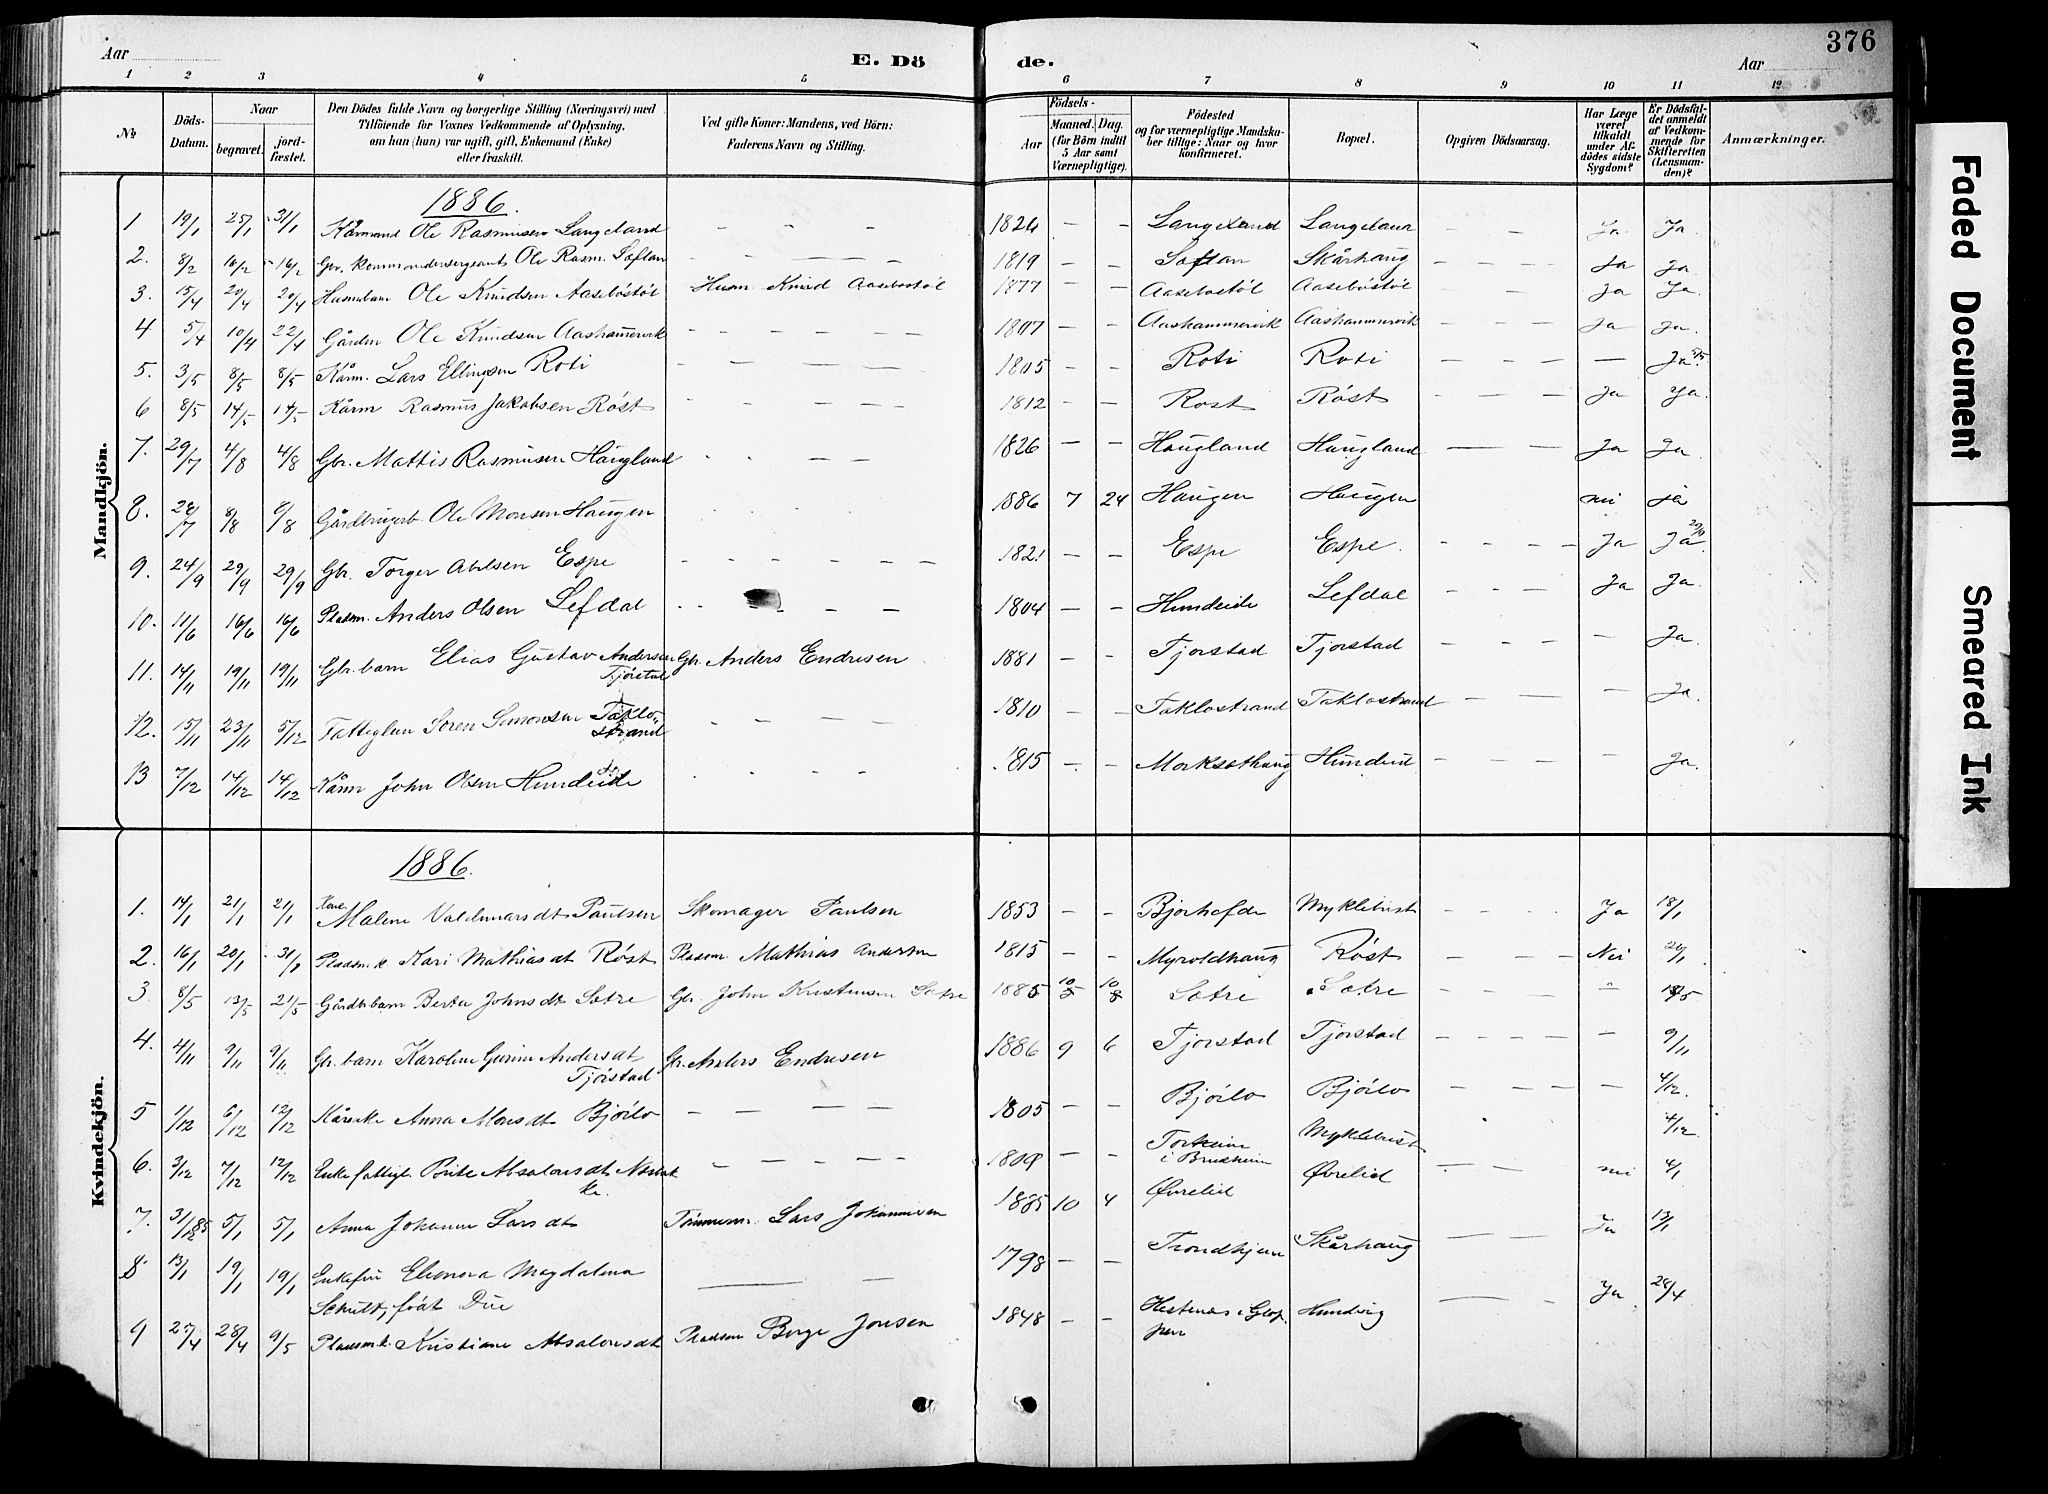 Aar
E. Dö
de.
Aar
376
1 2 3 4 5 6 7 8 9 10 11 12
No
Döds-Datum.
Naar
begravet.
jord-fæstet.
Den Dödes fulde Navn og borgerlige Stilling (Næringsvei) med
Tilföiende for Voxnes Vedkommende af Oplysning,
om han (hun) var ugift, gift, Enkemand (Enke)
eller fraskilt.
Ved gifte Koner: Mandens, ved Börn:
Faderens Navn og Stilling.
Födsels-
Aar
Maaned.
Dag.
(for Börn indtil
5 Aar samt
Værnepligtige).
Födested
og for værnepligtige Mandska-
ber tillige: Naar og hvor
konfirmeret.
Bopæl.
Opgiven Dödsaarsag.
Har Læge
været
tilkaldt
under Af-
dödes sidste
Sygdom?
Er Dödsfal-
det anmeldt
af Vedkom-
mende for
Skifteretten
(Lensman-
den)?
Anmærkninger.
Mandkjön.
1886.
1 19/1 25/1 31/1 Kårmand Ole Rasmusen Langeland - - - 1824 - - Langeland Langeland - - Ja Ja
2. 8/2 16/2 16/2 Gbr. Kommandersergeant Ole Rasm. Loftan - - - 1819 - - Loftan Skårhaug - - - Ja Ja
3. 15/4 20/4 20/4 Husmbarn Ole Knudsen Aasebøstøl Husm Knud Aasebøstøl 1877 - - Aasebøstøl Aasebøstøl - - - Ja Ja
4 5/4 10/4 22/4 Gårdm Ole Knudsen Aashammervik - - - 1807 - - Aashammervik Aashammervik - - - Ja Ja.
5. 3/5 8/5 8/5 Kårm. Lars Ellingsen Roti - - - 1805 - - Roti Roti - - - - Ja 5/5
6 8/5 14/5 14/5 Kårm Rasmus Jakobsen Røst - - - 1812 - - Røst Røst - - - Ja Ja.
7. 29/7 4/8 4/8 Gbr. Mattis Rasmusen Haugland - - - 1826 - - Haugland Haugland - - Ja Ja.
8. 28/7 8/8 9/8 Gårdbrugerb. Ole Monsen Haugen - - - 1886 7 24 Haugen Haugen nei ja
9. 24/9 29/9 29/9 Gbr. Torger Abelsen Espe - - - 1821 - - Espe Espe. - - - Ja Ja
10. 11/6 16/6 16/6 Pladsm. Anders Olsen Lefdal - - - 1804 - - Hundeide Lefdal - - - Ja Ja.
11. 14/11 19/11 19/11 Gbr. barn Elias Gustav Andersen Gbr. Anders Endresen 1881 - - Tjørstad Tjørstad - - - - Ja.
12. 15/11 23/11 5/12 Fattiglem Søren Simonsen Taklo-
strand - - - 1810 - - Taklostrand Taklostrand - - - - Ja.
13 7/12 14/12 14/12 Kårm John Olsen Hundeide - - - 1815 - - Hundeid - - - - Ja.
Kvindekjön.
1886.
1. 14/1 21/1 21/1 Kone Malene Valdemarsdt Paulsen Skomager Paulsen 1853 - - Myklebust - - - Ja 18/1
2. 16/1 20/1 31/1 Pladsm. k. Kari Mathiasdt Røst Pladsm. Mathias Andersen 1815 - - Myroldhaug Røst - - - Nei
3 8/5 13/5 21/5 Gårdbr.barn Berta Johnsdt Sætre Gbr. John Kristensen Sætre 1885 Sætre Sætre - - - "
4. 4/11 9/11 9/11 Gbr. barn Karoline Andersdt
Tjørstad Gbr. Anders Endresen 1886 9 6 Tjørstad Tjørstad - - - - 9/11
5 1/12 6/12 12/12 Anna Monsdt Bjørlo - - - 1805 - - Bjørlo Bjørlo - - - - 4/12.
6. 3/12 7/12 12/12 Enke fattigl. Brite Absalonsdt - - - 1809 - -
i Myklebust 4/12.
7. 31/12 85 5/1 5/1 Anna Johanne Larsdt Tømmerm. Lars Johannesen 1885 10 4 Øvrelid Øvrelid - - - nei 4/1
8 13/1 19/1 19/1 Enkefru Eleonora Magdalena
Schult, født Due - - 1798 - - Trondhjem Skårhaug - - - Ja 13/1
9 27/4 28/4 9/5 Pladsm.k. Kristiane Absalonsdt Pladsm Børge Jonsen 1848 - - Hestenæs i Glop-
pen Hundvig - - - Ja 28/4
Faded Document
Smeared Ink